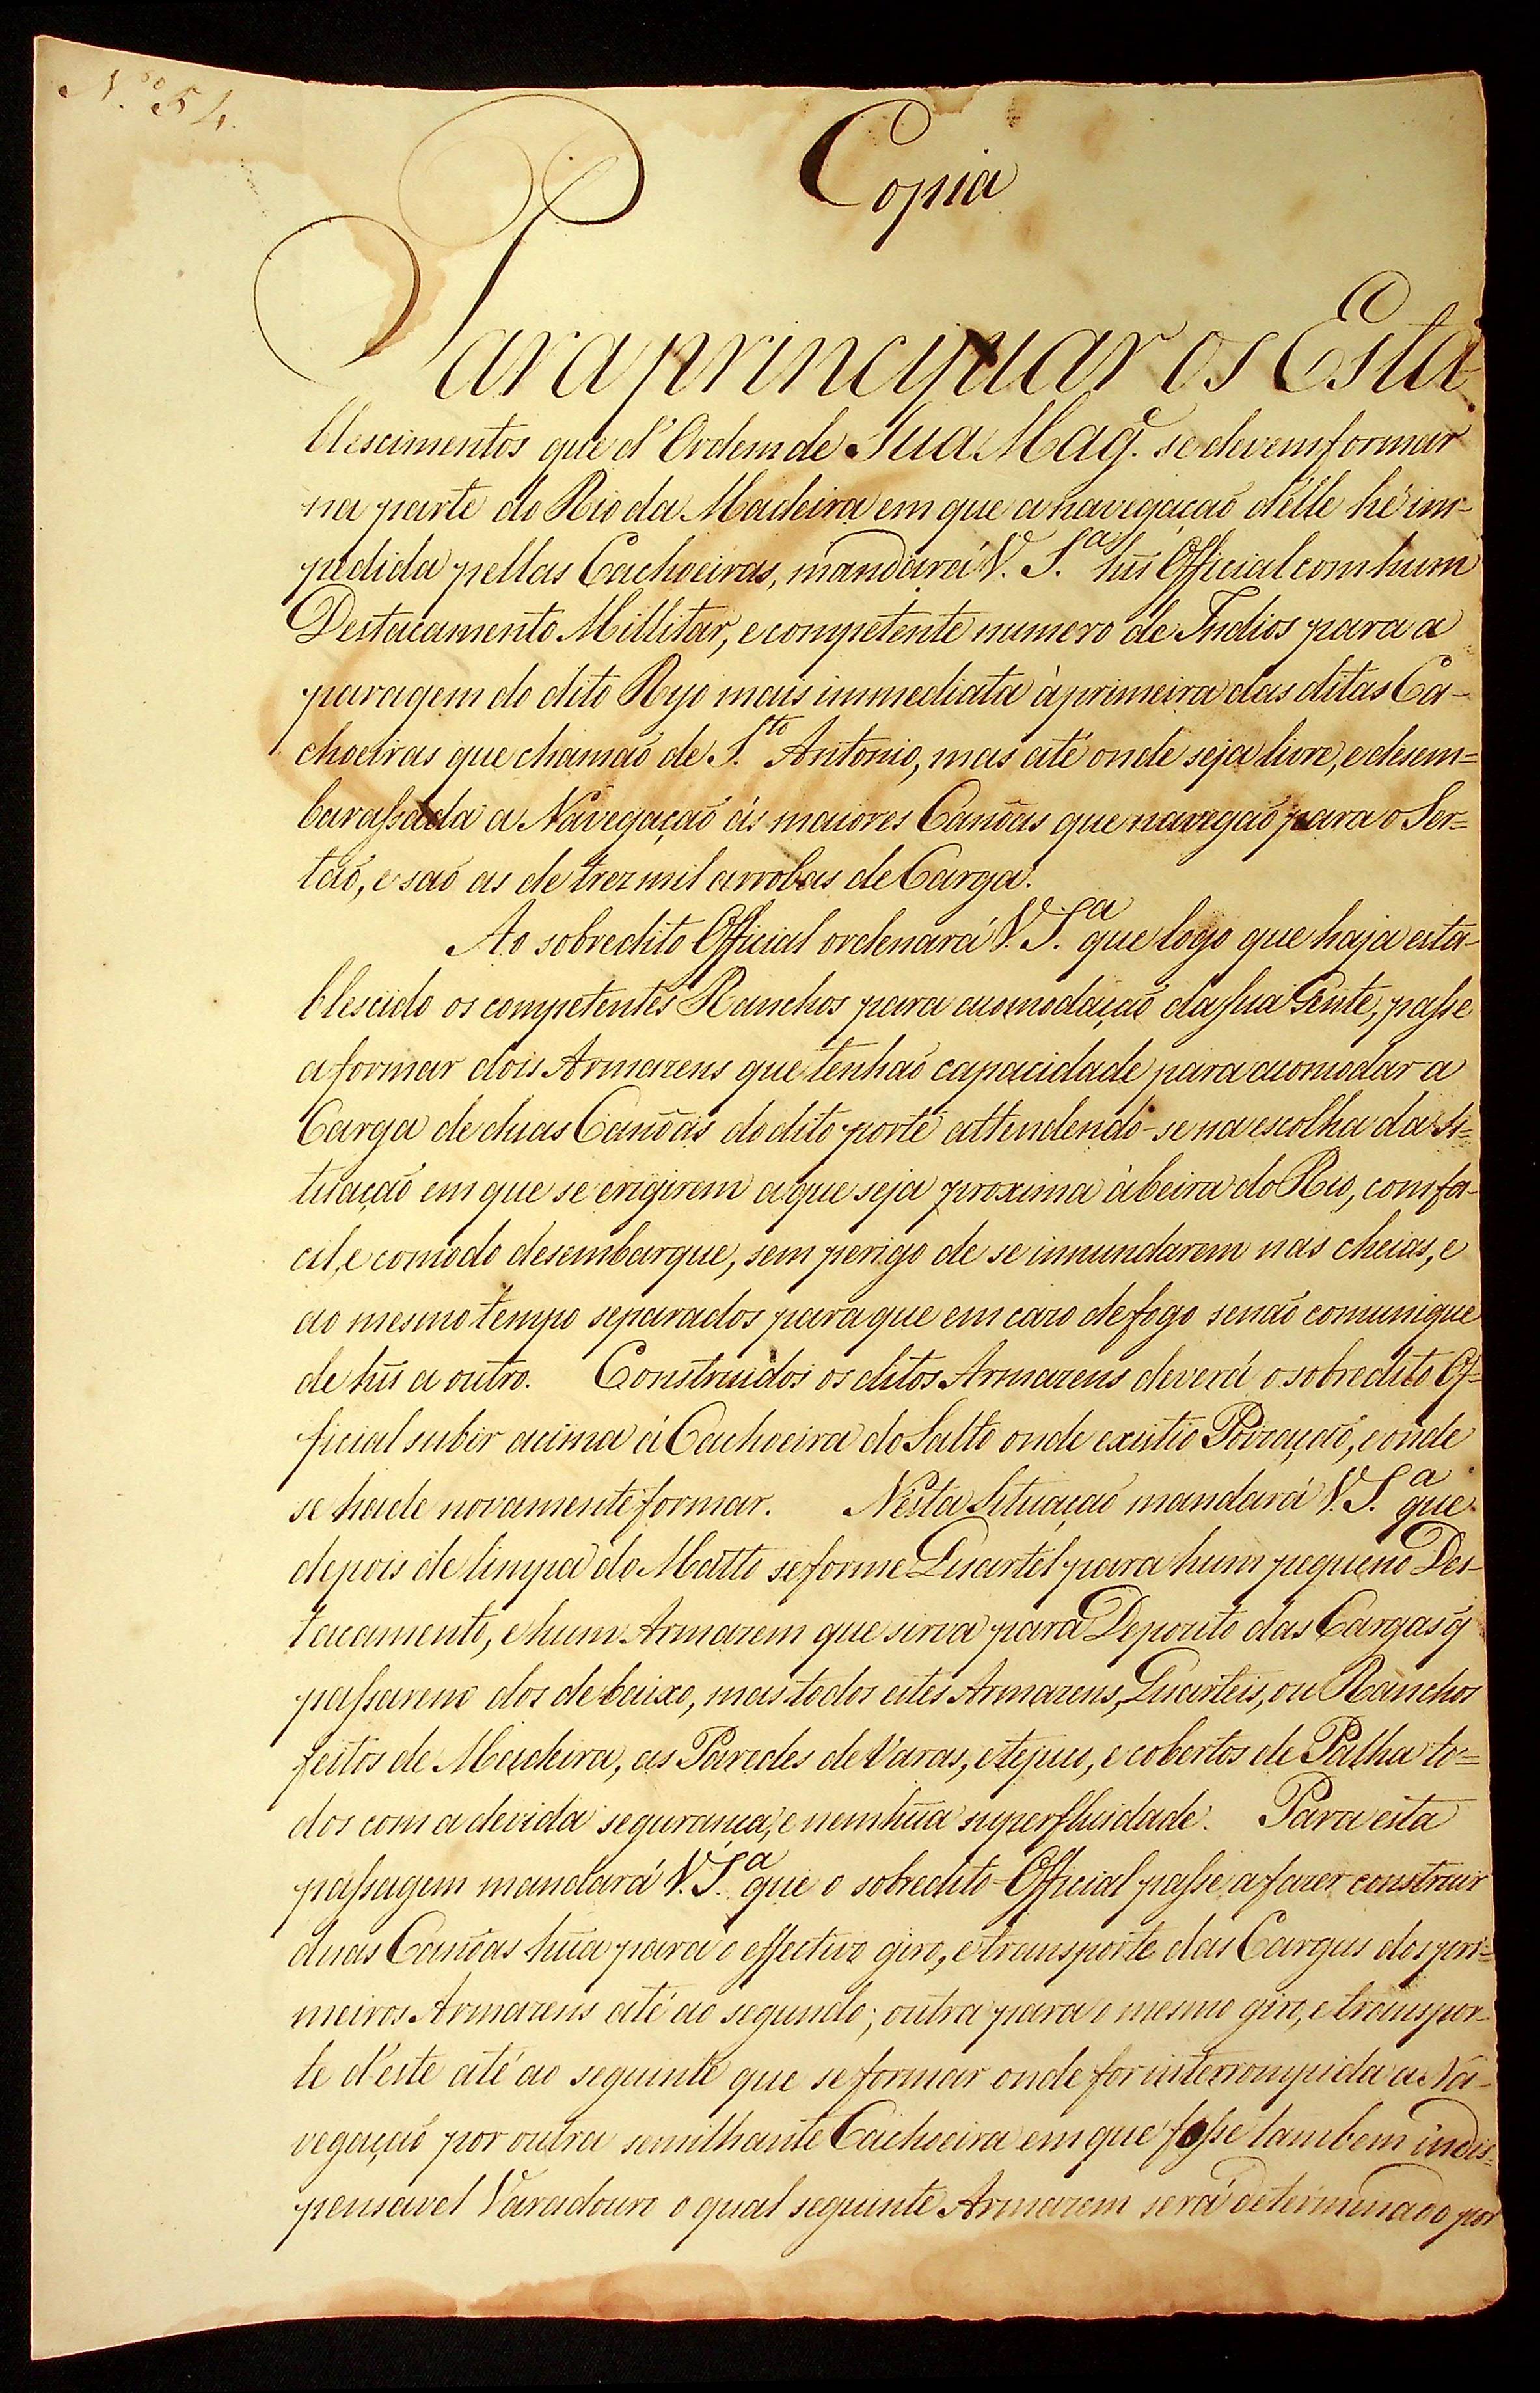 N.º 54.
Copia
Para principiar os Esta-
blescimentos que d'Ordem de Sua Mag.e se devem formar
na parte do Rio da Madeira em que a navegaçaõ d'elle hé im-
pedida pellas Cachoeiras, mandará V. S.ª hũ Official com hum
Destacamento Millitar, e competente numero de Indios para a
paragem do dito Ryo mais immediata à primeira das ditas Ca-
choeiras que chamaõ de S.to Antonio, mas até onde seja livre, e desem=
barassada a Navegaçaõ ás maiores Canôas que navegaõ para o Ser=
taõ, e saõ as de trez mil arrobas de Carga.
Ao sobredito Official ordenará V. S.ª que logo que haja esta-
blescido os competentes Ranchos para acomodaçaõ da sua Gente, passe
a formar dois Armazens que tenhaõ capacidade para acomodar a
Carga de duas Canôas do dito porte attendendo-se na escolha da si=
tuaçaõ em que se erigirem a que seja proxima à beira do Rio, com fa-
cil, e comodo desembarque, sem perigo de se innundarem nas cheias, e
ao mesmo tempo separados para que em cazo de fogo se naõ comunique
de hũ a outro. Construidos os ditos Armazens deverá o sobredito Of=
ficial subir acima á Cachoeira do Salto onde existio Povoaçaõ, e onde
se hade novamente formar. Nesta Situaçaõ mandará V. S.ª que
depois de limpa do Matto se forme Quartel para hum pequeno Des-
tacamento, e hum Armazem que sirva para Depozito das Cargas q̃
passarem dos de baixo, mas todos estes Armazens, Quarteis, ou Ranchos
feitos de Madeira, as Paredes de Varas, e tejuco, e cobertos de Palha to=
dos com a devida segurança, e nemhũa superfluidade. Para esta
passagem mandará V. S.ª que o sobredito Official passe a fazer construir
duas Canôas hũa para o effectivo giro, e transporte das Cargas dos pri=
meiros Armazens até ao segundo; outra para o mesmo giro, e transpor-
te d'este até ao seguinte que se formar onde for interrompida a Na-
vegaçaõ por outra semilhante Cachoeira em que fosse tambem indis=
pensavel Varadouro o qual seguinte Armazem será determinado por